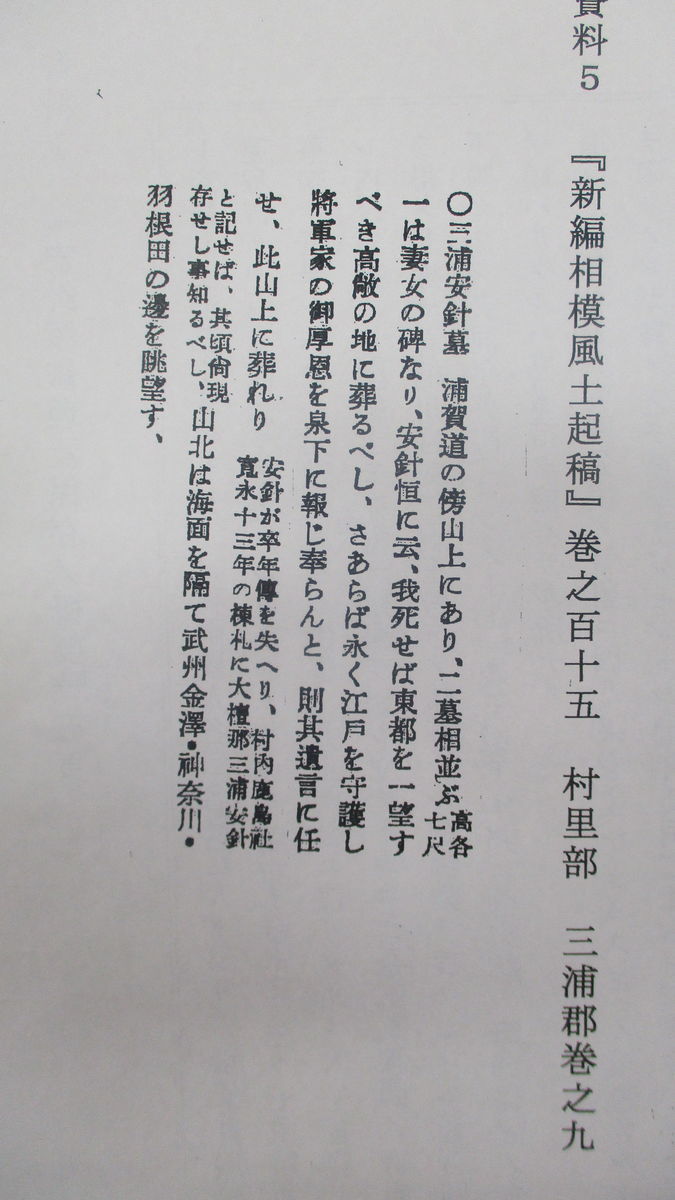 資料5 『新編相模風土起稿』巻之百十五 村里部 三浦郡巻之九
〇三浦安針墓 浦賀道の傍山上にあり、二墓相並ぶ高各七尺
一は妻女の碑なり、安針恒に云、我死せば東都を一望す
べき高敞の地に葬るべし、さあらば永く江戸を守護し
將軍家の御厚恩を泉下に報じ奉らんと、則其遺言に任
せ、此山上に葬れり 安針が卒年傳を失へり、村内鹿島社
寛永十三年の棟札に大檀那三浦安針
と記せば、其頃尙現
存せし事知るべし、山北は海面を隔て武州金澤・神奈川・
羽根田の邊を眺望す、